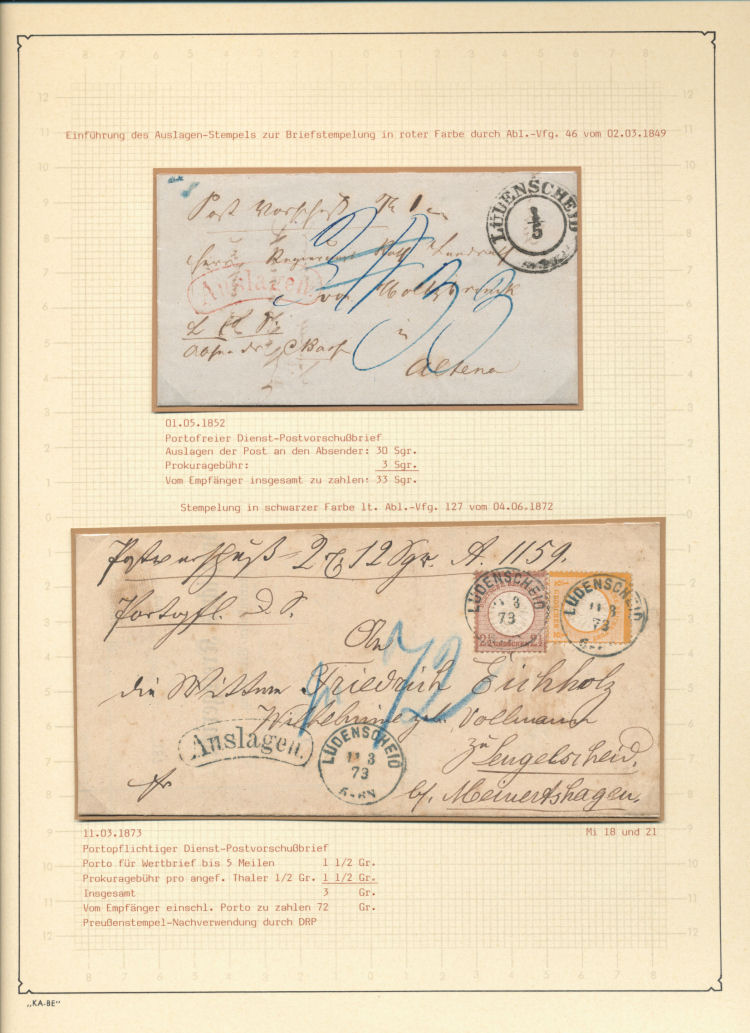 Einführung des Auslagen-Stempels zur Briefstempelung in roter Farbe durch Abl.-Vfg. 46 vom 02.03.1849
Post Vorschuß
LÜDENSCHEID
Herrn
Auslagen.
33
in
Altena
01.05.1852
Portofreier Dienst-Postvorschußbrief
Auslagen der Post an den Absender: 30 Sgr.
Prokuragebühr: 3 Sgr.
Vom Empfänger insgesamt zu zahlen: 33 Sgr.
Stempelung in schwarzer Farbe lt. Abl.-Vfg. 127 vom 04.06.1872
Postvorschuß 2 12 Sgr. A. 1159.
Portopfl. D. S.
LÜDENSCHEID 11 3 73
LÜDENSCHEID 11 3 73
An
72
die Wittwe Friedrich Eichholz
Wilhelmine geb. Vollmann
Auslagen.
LÜDENSCHEID 11 3 73
zu Lengelscheid.
b/. Meinertshagen.
11.03.1873
Mi 18 und 21
Portopflichtiger Dienst-Postvorschußbrief
Porto für Wertbrief bis 5 Meilen 1 1/2 Gr.
Prokuragebühr pro angef. Thaler 1/2 Gr. 1 1/2 Gr.
Insgesamt 3 Gr.
Vom Empfänger einschl. Porto zu zahlen 72 Gr.
Preußenstempel-Nachverwendung durch DRP
„KA-BE"